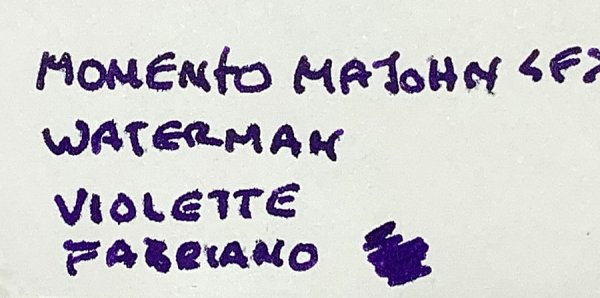 MOMENTO MAJOHN <F>
WATERMAN
VIOLETTE
FABRIANO